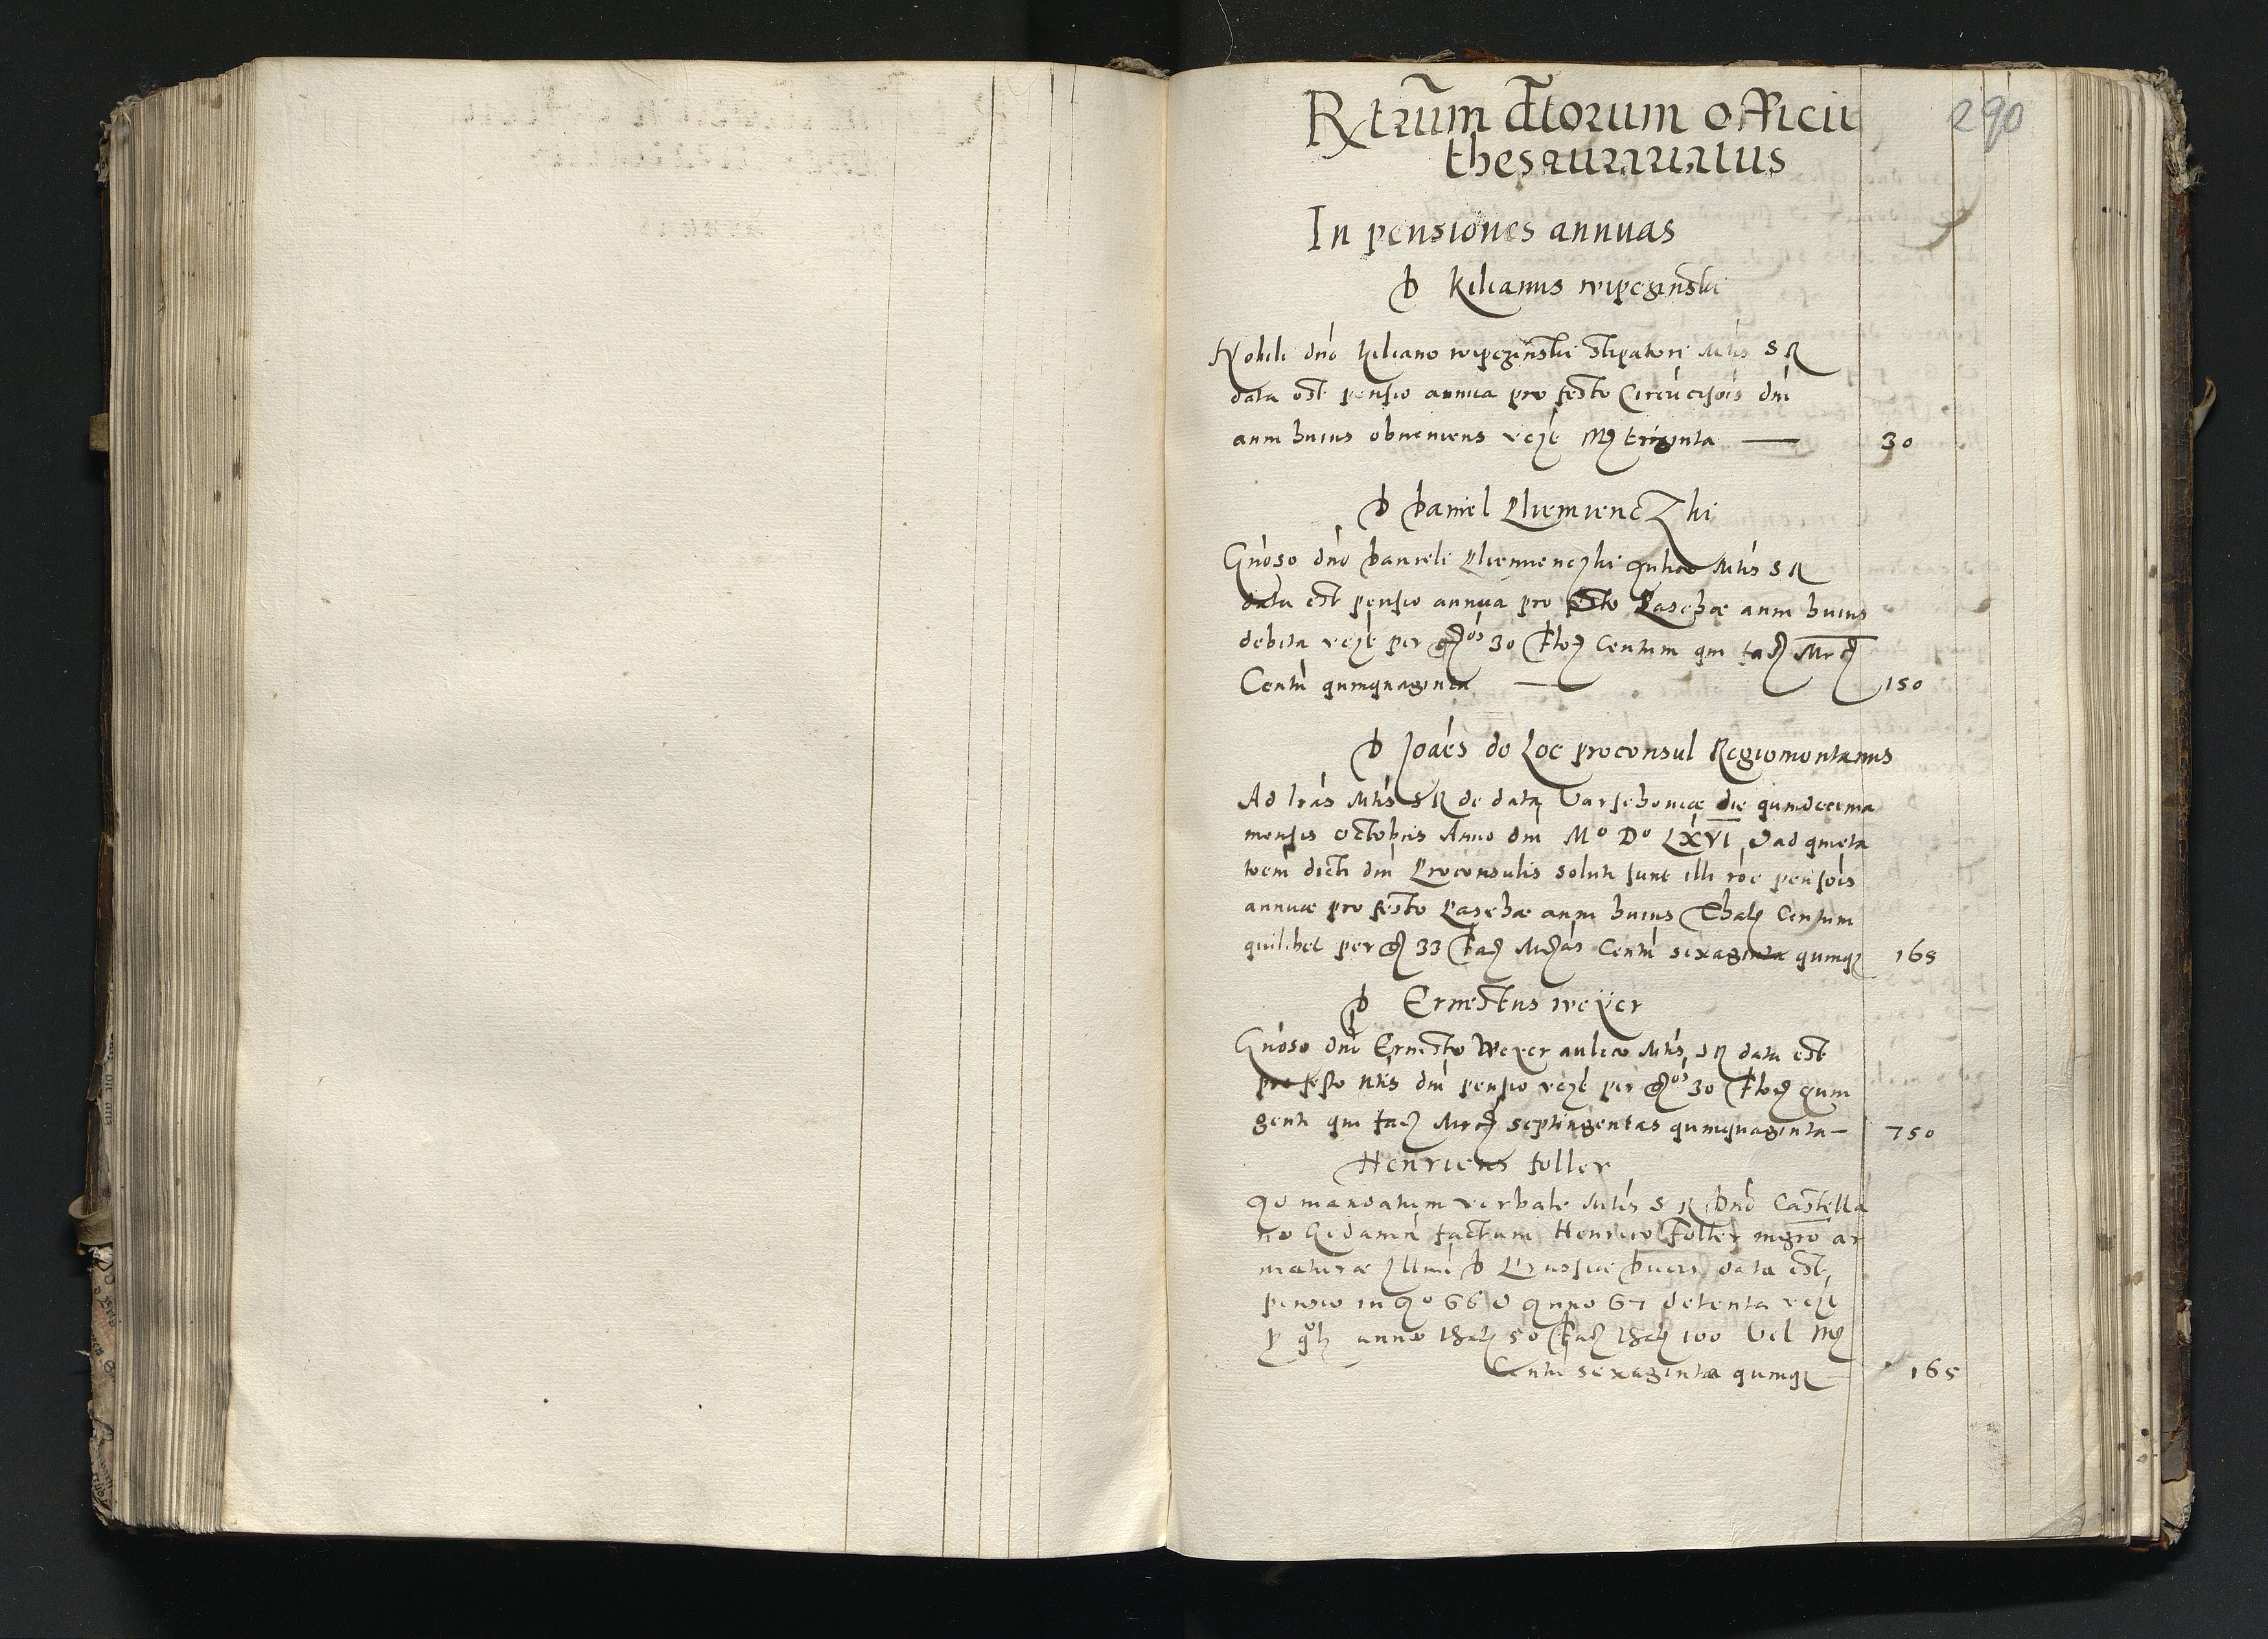 Rx trūm dctorum officii
290
thesaurariatus
In pensiones annuas
D Kilianus wipczinski
Nobili dno Kiliano wipczinski stipatori Mtis S R
data est pensio annua pro festo Circūcisois dni
anni huius obveniens vczt Mg triginta — 30
D Daniel Pliemienczki
Gnoso dno Danieli Pliemienczki aulico Mtis S R
data est pensio annua pro festo Paschæ anni huius
debita vczt per gos 30 Centum qui
Centu quinquaginta — 150
D Joães do Loe proconsul Regiomontanus
Ad lras Mtis S R de data Varschoviæ die quindecima
mensis octobris Anno dni Mº Dº LXVI ad quieta
toem dicti dni Proconsulis soluti sunt illi roe pensois
annuæ pro festo Paschæ anni huius Thal Centum
quilibet per g 33 Centu sexaginta quinqz 165
D Ernestus weyer
Gnoso dno Ernesto Weyer aulico Mtis S R data est
pro festo Ntis dni pensio vczt per gos 30 quin
genti qui septingentas quinquaginta — 750
Henricus foller
Ad mandatum verbale Mtis S R Dno Castella
no Gedanen factum Henrico Foller mgro ar
maturæ Illmi D Prussiæ Ducis data est
pensio in Aº 66 & Anno 67 detenta vczt
anno 50 100 vel Mg
Centu sexaginta quinqz — 165